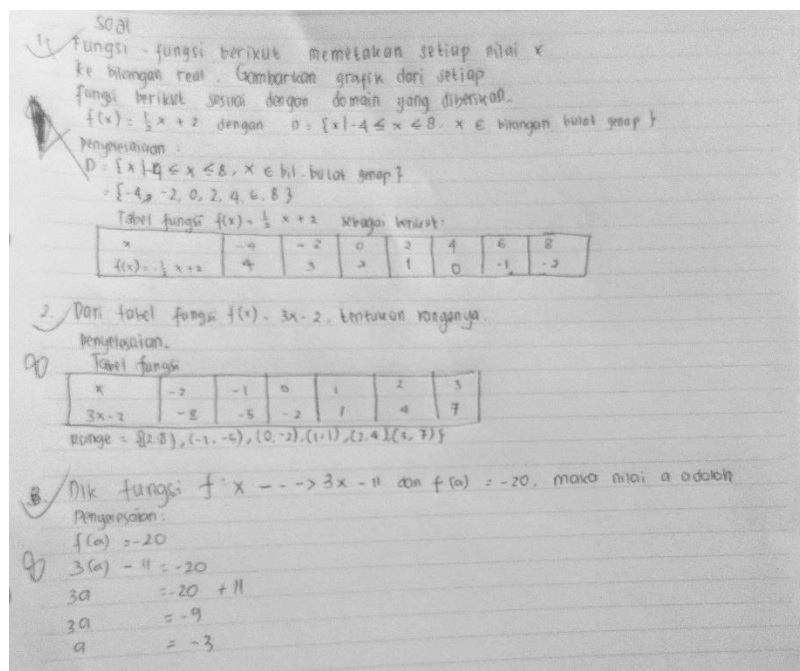 soal
1. Fungsi - fungsi berikut memetakan setiap nilai x
ke bilangan real. Gambarkan grafik dari setiap
fungsi berikut sesuai dengan domain yang diberikan.
f(x) = ½ x + 2 dengan D = {x|-4 ≤ x ≤ 8. x ∈ bilangan bulat genap }
Penyelesaian :
D = {x|-4 ≤ x ≤ 8, x ∈ bil. bulat genap }
= {-4, -2, 0, 2, 4, 6, 8 }
Tabel fungsi f(x) = ½ x + 2 sebagai berikut.
x -4 -2 0 2 4 6 8
f(x) = -½ x + 2 4 3 2 1 0 -1 -2
2. Dari tabel fungsi f(x) = 3x - 2. tentukan rangenya.
Penyelesaian.
Tabel fungsi
x -2 -1 0 1 2 3
3x - 2 -8 -5 -2 1 4 7
Range = {(2.8), (-1, -5), (0, -2), (1,1), (2,4), (3, 7)}
3. Dik fungsi f : x ---> 3x - 11 dan f(a) = -20, maka nilai a adalah
Penyelesaian :
f(a) = -20
3(a) - 11 = -20
3a = -20 + 11
3a = -9
a = -3